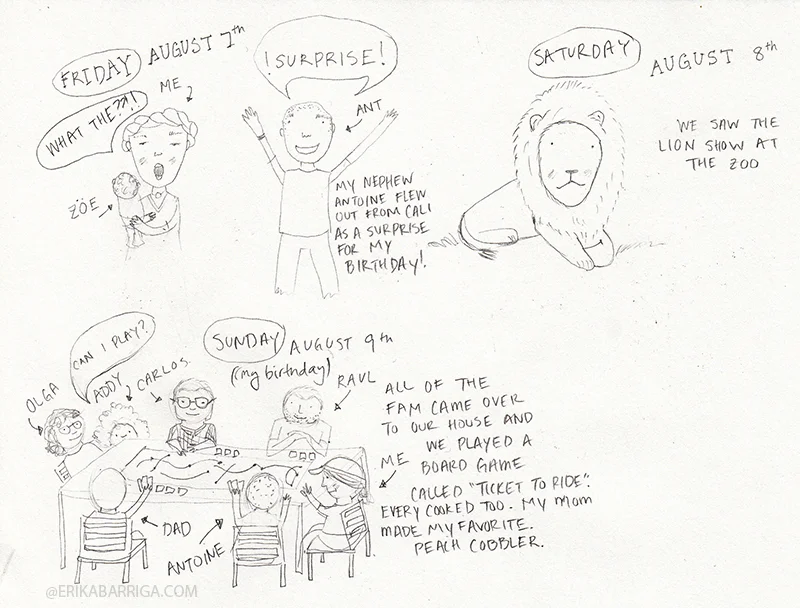 FRIDAY AUGUST 7th
WHAT THE??!
ME
ZÖE
!SURPRISE!
ANT
MY NEPHEW
ANTOINE FLEW
OUT FROM CALI
AS A SURPRISE
FOR MY
BIRTHDAY!
SATURDAY AUGUST 8th
WE SAW THE
LION SHOW AT
THE ZOO
SUNDAY AUGUST 9th
(my birthday)
OLGA
CAN I PLAY?
ADDY
CARLOS
RAUL
ME
DAD
ANTOINE
ALL OF THE
FAM CAME OVER
TO OUR HOUSE AND
WE PLAYED A
BOARD GAME
CALLED "TICKET TO RIDE".
EVERY COOKED TOO. MY MOM
MADE MY FAVORITE.
PEACH COBBLER.
@ERIKABARRIGA.COM